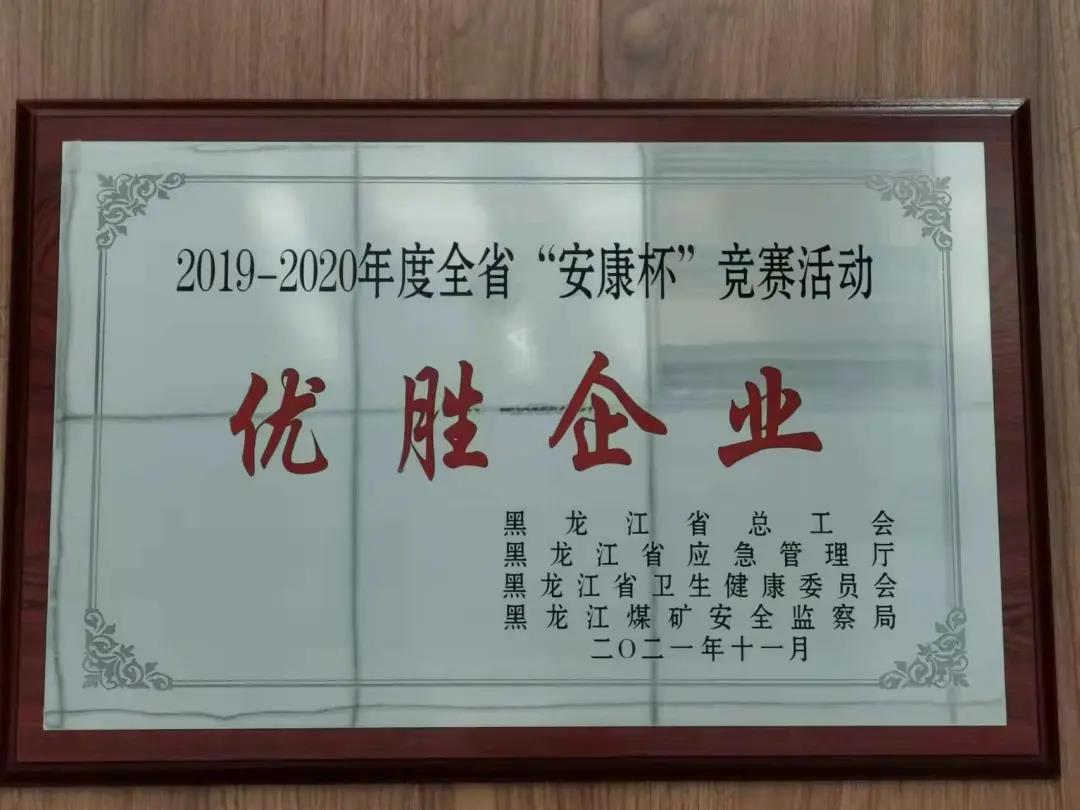 2019-2020年度全省“安康杯”竞赛活动
优胜企业
黑龙江省总工会
黑龙江省应急管理厅
黑龙江省卫生健康委员会
黑龙江煤矿安全监察局
二〇二一年十一月